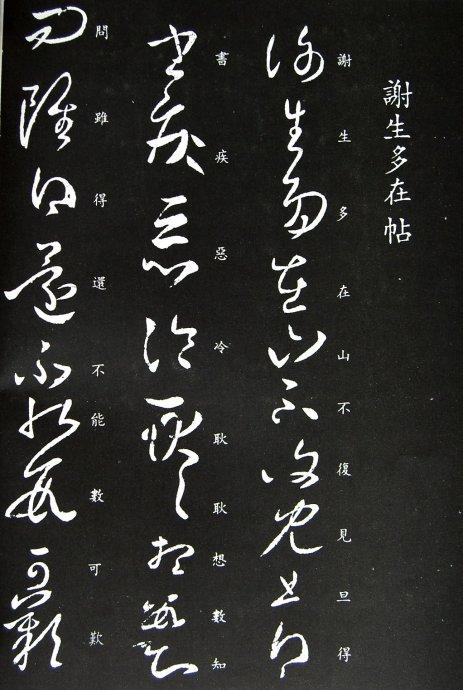 謝生多在帖
謝生多在山不復見旦得
書疾惡冷耿耿想數知
問雖得還不能數可歎